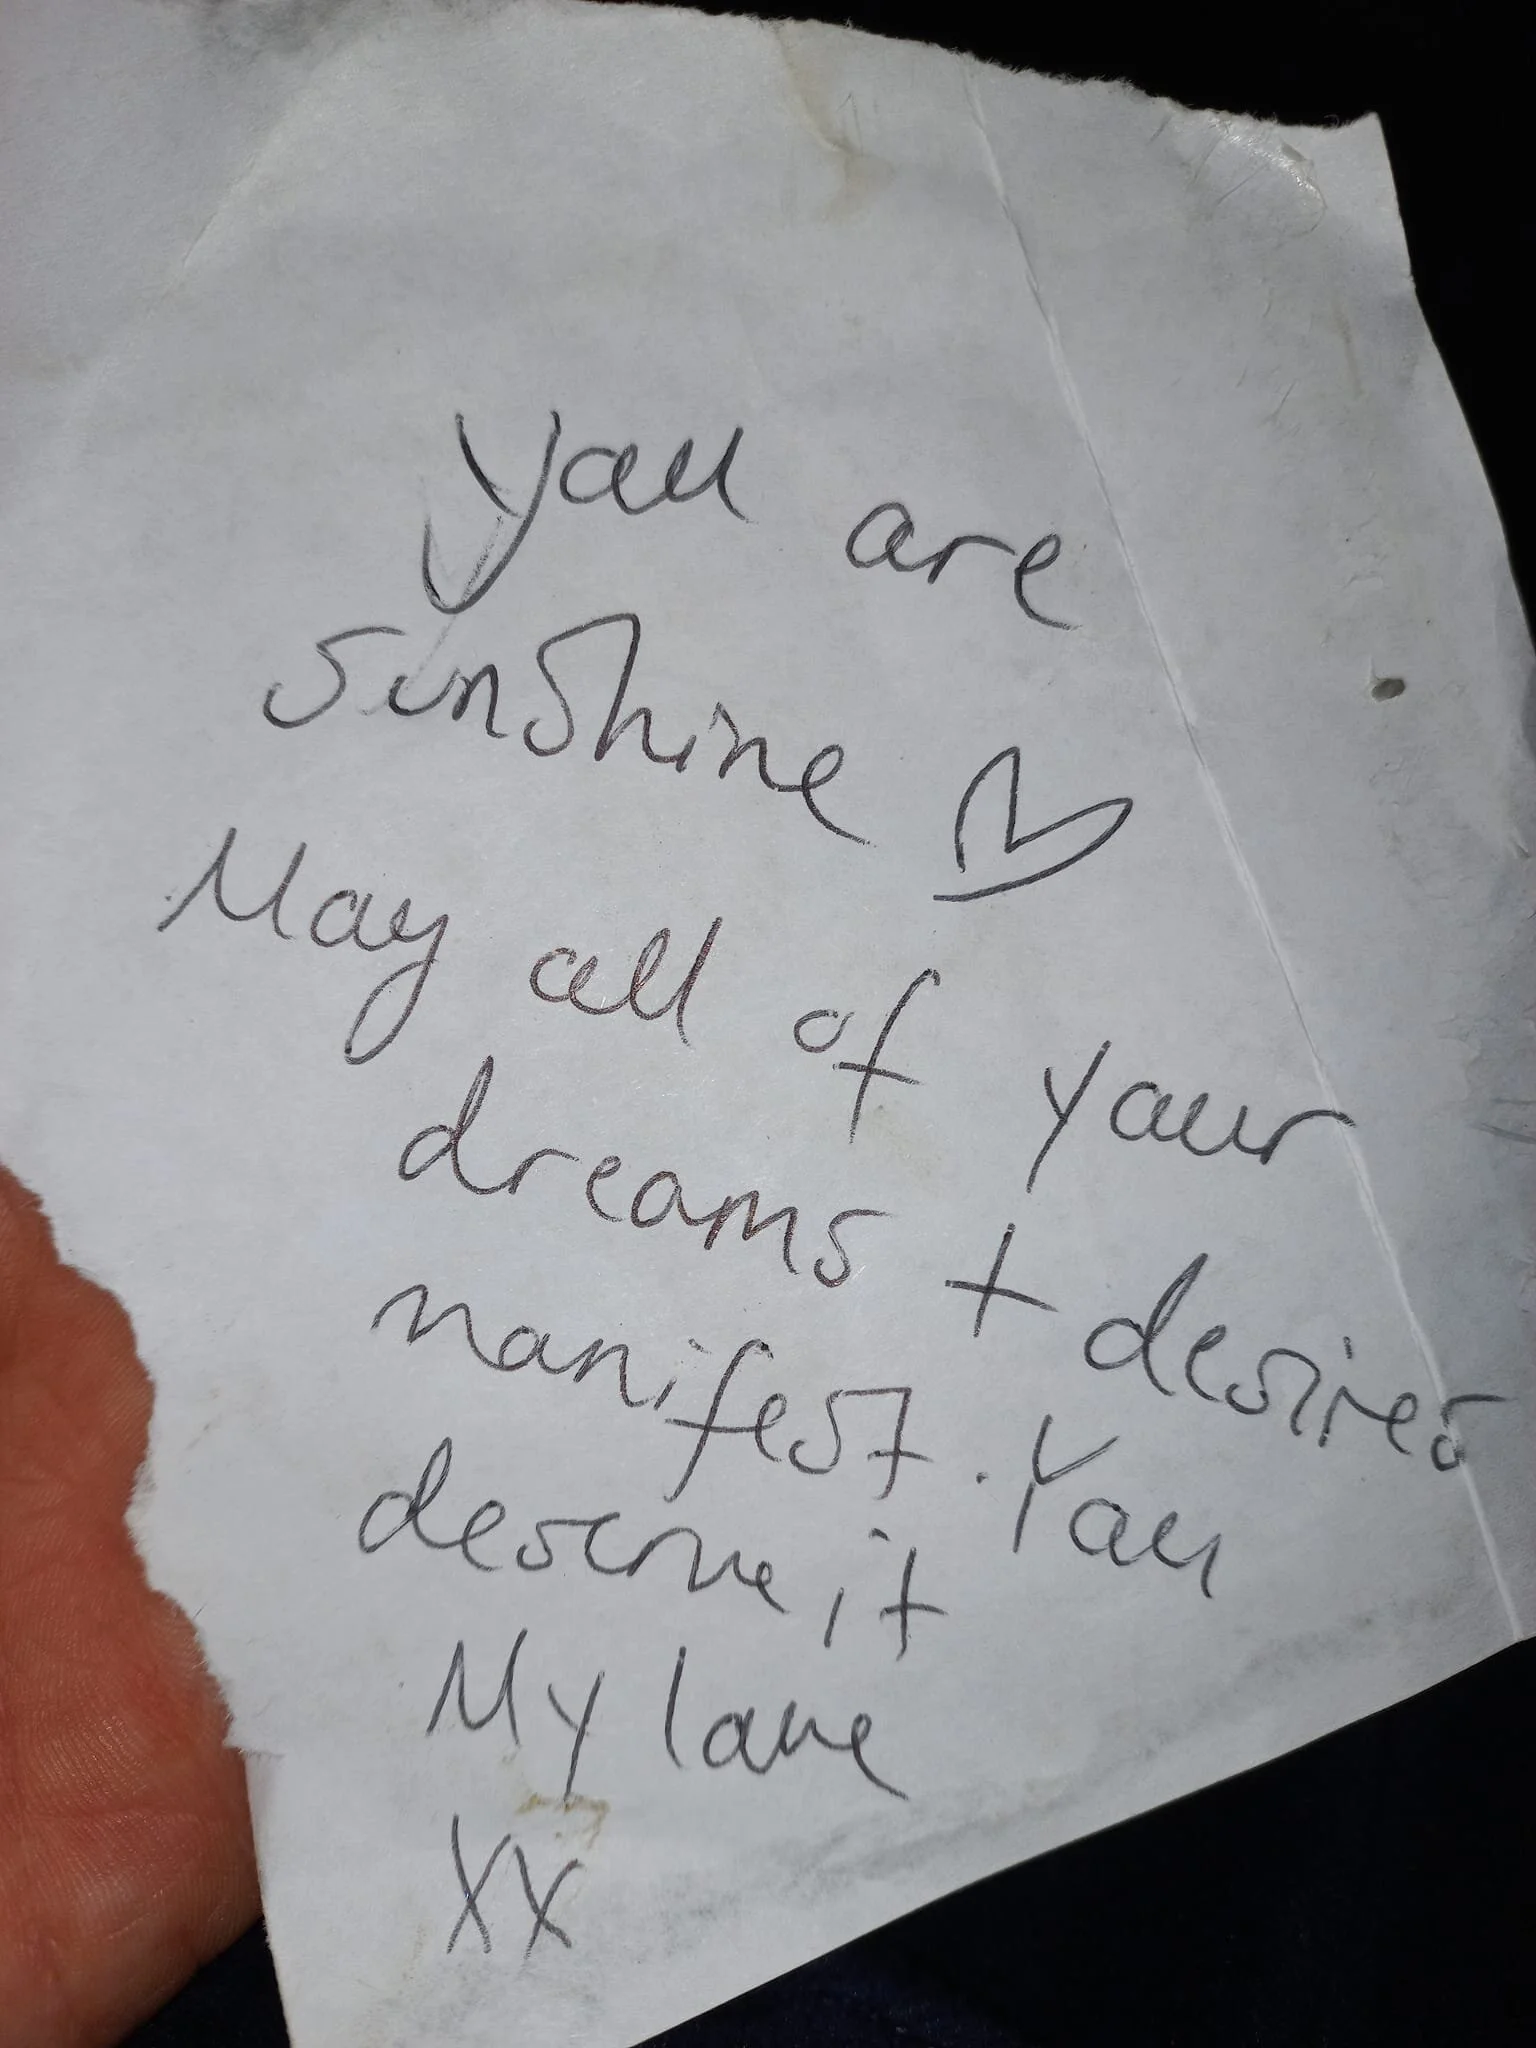 You are
sunshine ♡
May all of your
dreams + desires
manifest. You
deserve it
My love
xx